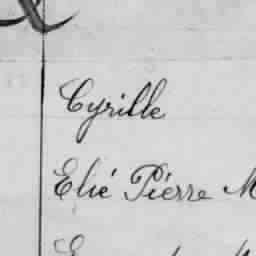 Cyrille
Elié Pierre